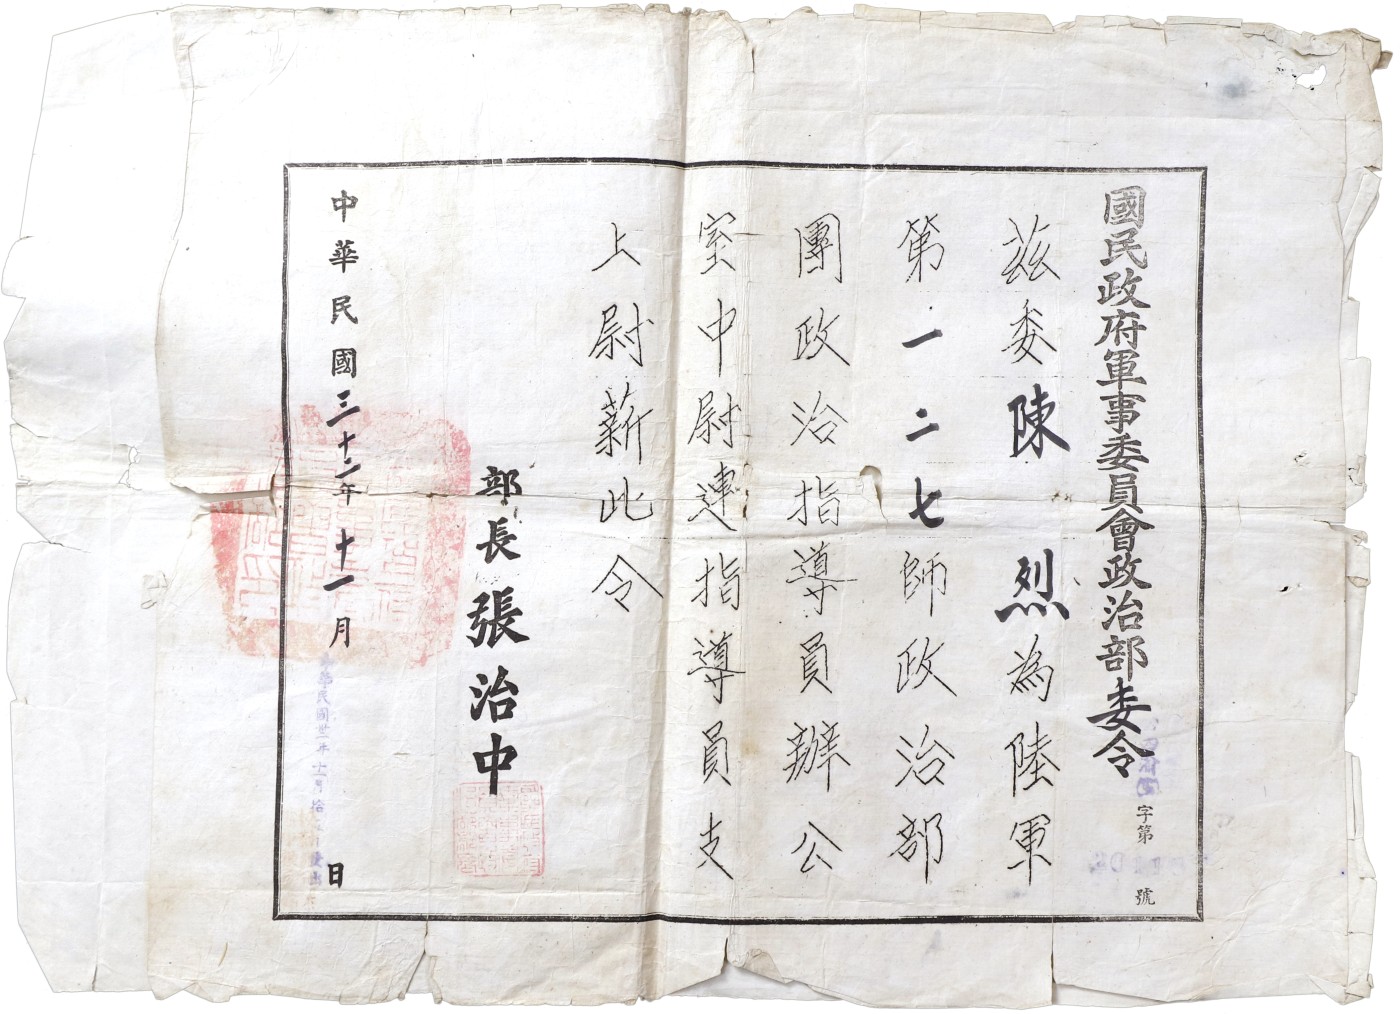 國民政府軍事委員會政治部委令
字第 號
茲委陳烈為陸軍
第一二七師政治部
團政治指導員辦公
室中尉連指導員支
上尉薪此令
部長張治中
中華民國三十二年十一月 日